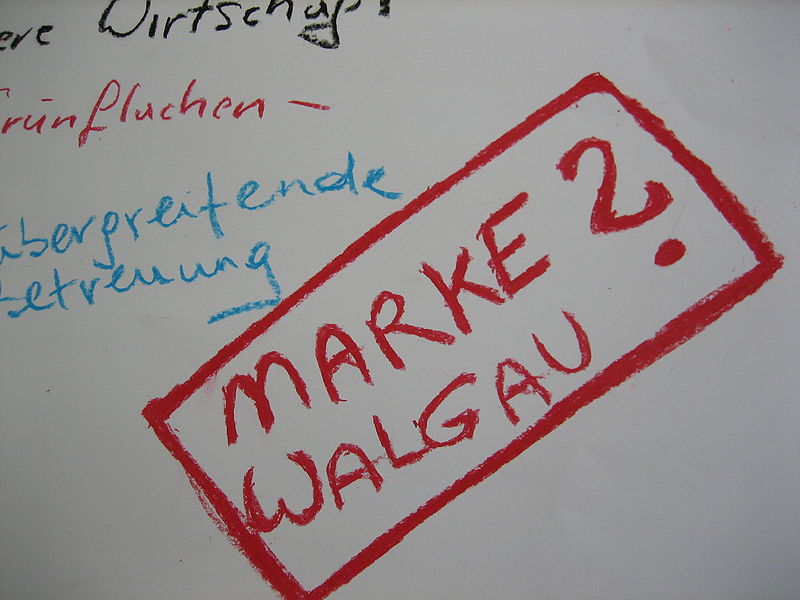 ere Wirtschaft
rünflachen –
übergreifende
Betreuung
MARKE ?
WALGAU